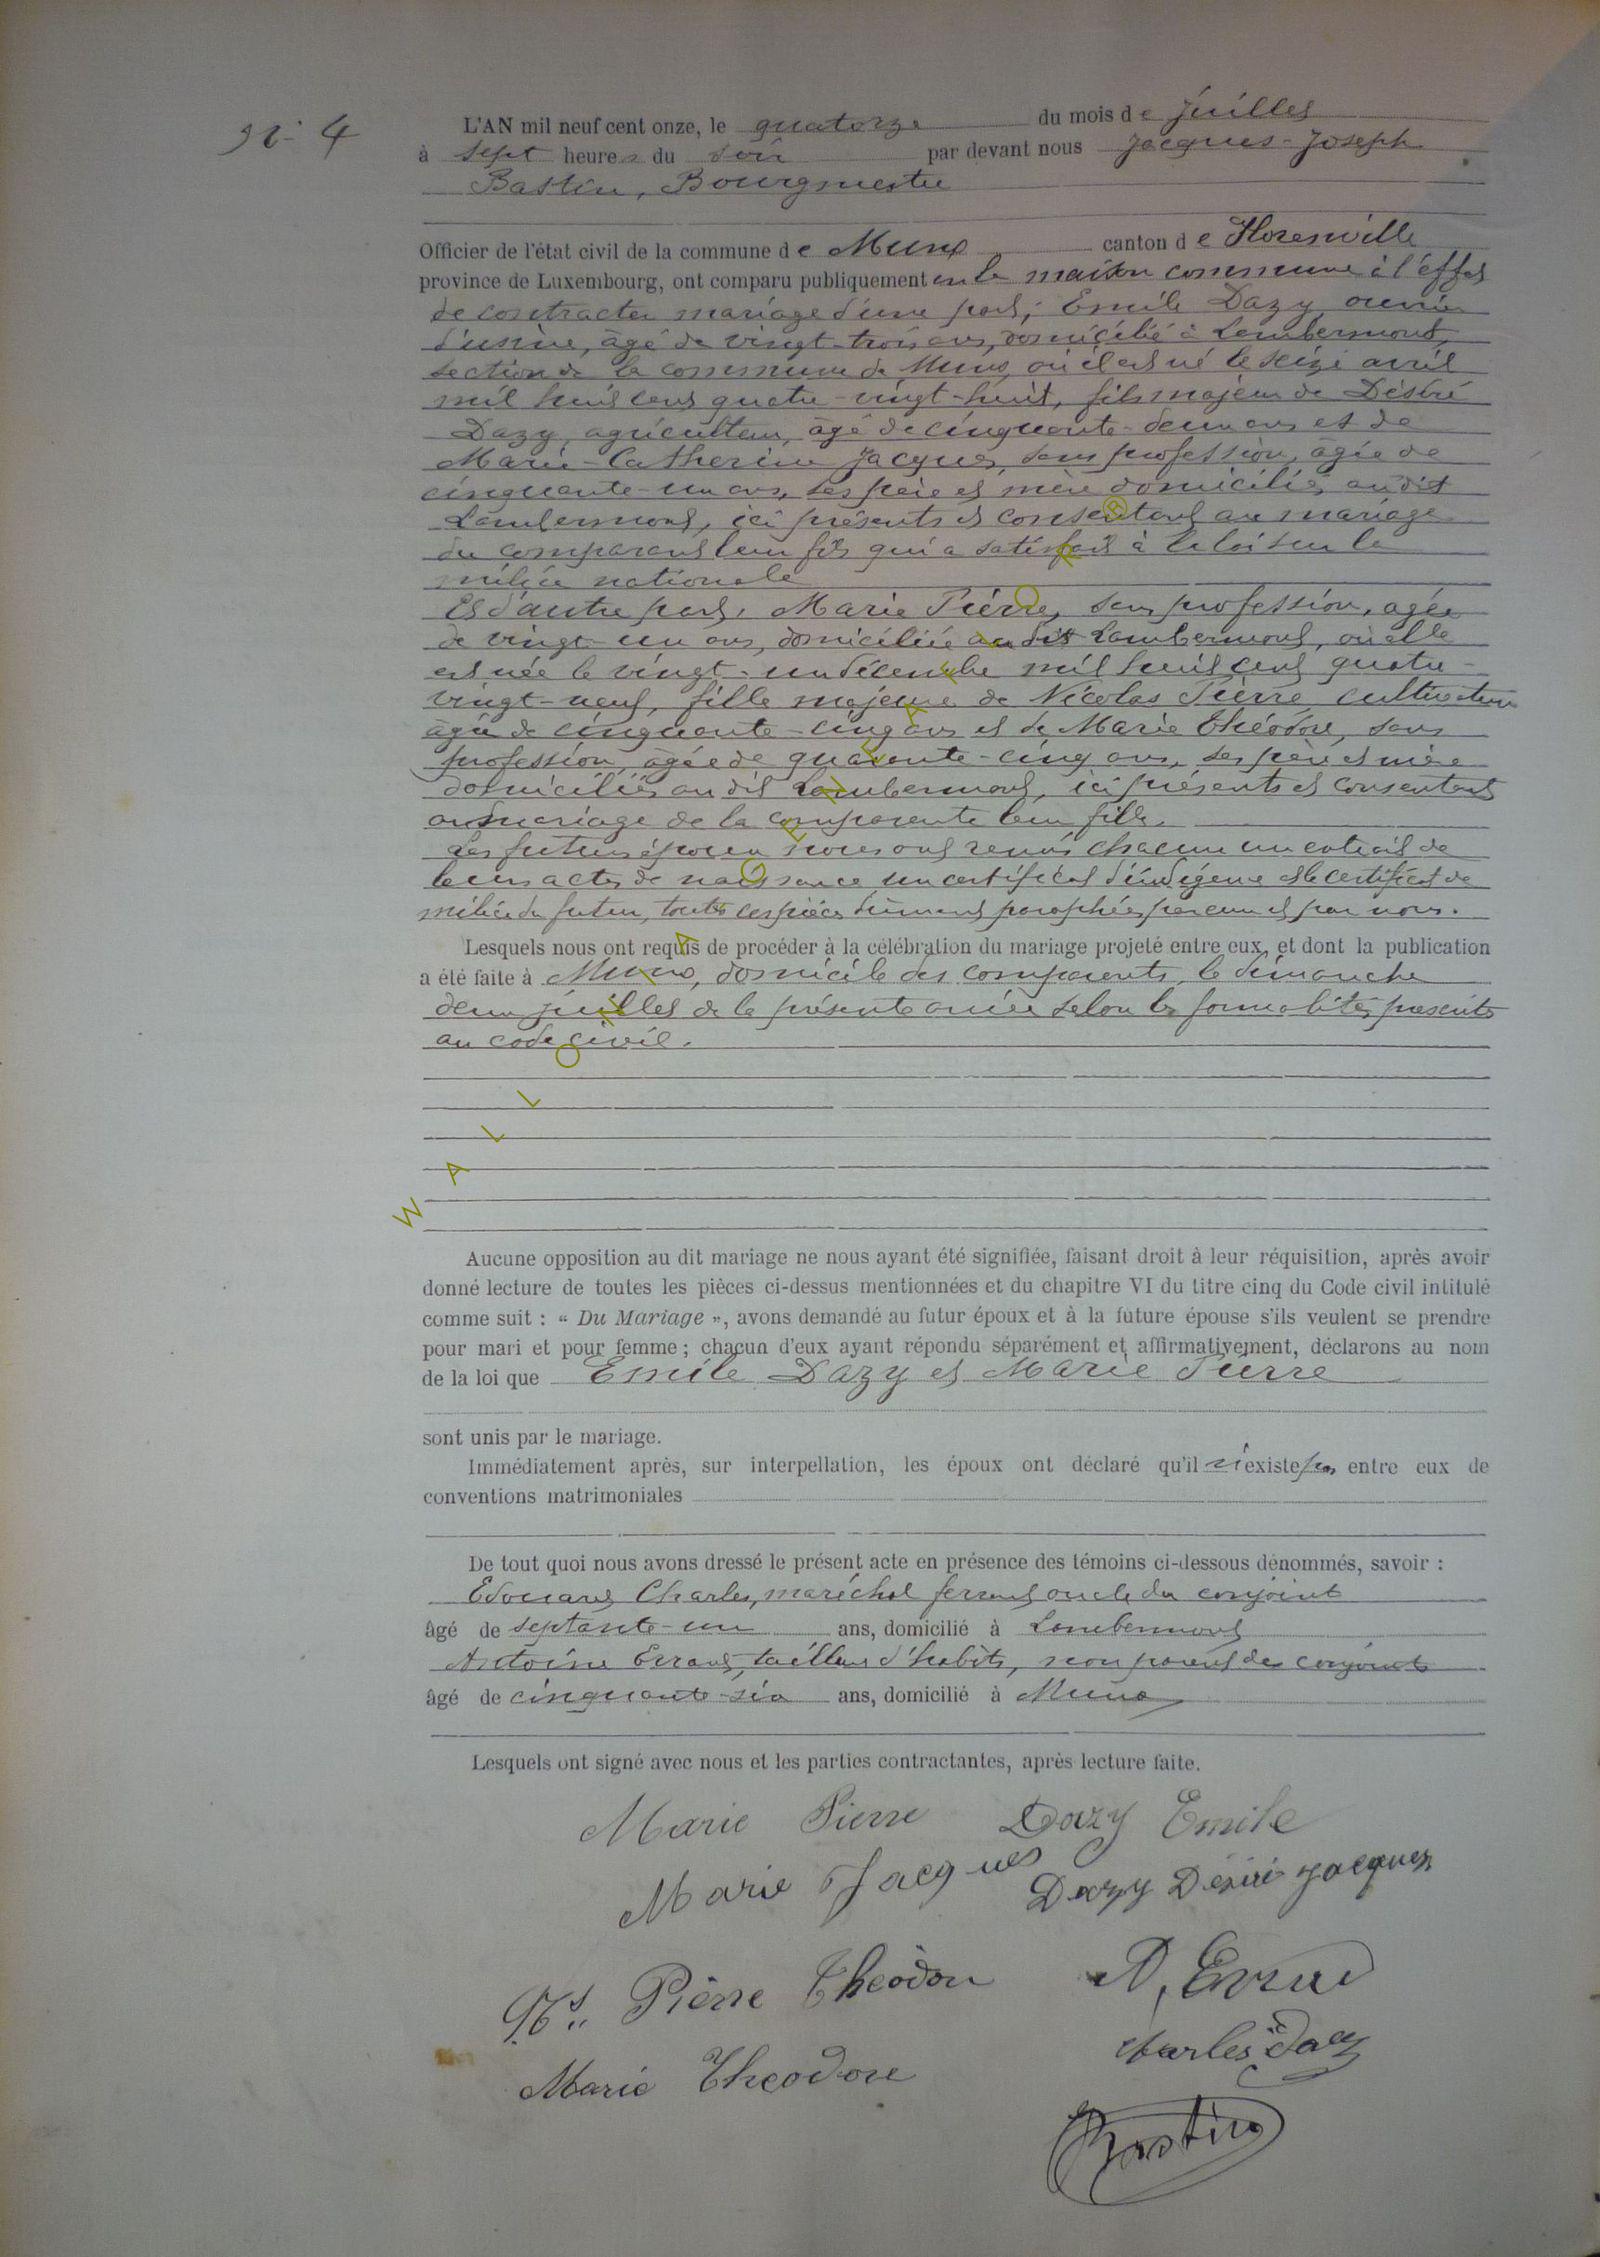 N° 4
L'AN mil neuf cent onze, le quatorze du mois de Juillet
à sept heures du soir par devant nous Jacques-Joseph
Bastin, Bourgmestre
Officier de l'état civil de la commune de Muno canton de Florenville
province de Luxembourg, ont comparu publiquement en la maison commune à l'effet
de contracter mariage d'une part, Emile Dazy ouvrier
d'usine, âgé de vingt-trois ans, domicilié à Lambermont,
section de la commune de Muno, où il est né le seize avril
mil huit cent quatre-vingt-huit, fils majeur de Désiré
Dazy, agriculteur, âgé de cinquante-deux ans et de
Marie-Catherine Jacques, sans profession, âgée de
cinquante-un ans, ses père et mère domiciliés audit
Lambermont, ici présents et consentant au mariage
du comparant leur fils qui a satisfait à la loi sur la
milice nationale
Et d'autre part, Marie Pierre, sans profession, agée
de vingt-un ans, domiciliée au dit Lambermont, où elle
est née le vingt-un décembre mil huit cent quatre-
vingt-neuf, fille majeure de Nicolas Pierre, cultivateur
âgé de cinquante-cinq ans et de Marie Théodore, sans
profession, âgée de quarante-cinq ans, ses père et mère
domiciliés au dit Lambermont, ici présents et consentant
au mariage de la comparante leur fille.
Les futurs époux nous ont remis chacun un extrait de
leurs actes de naissance, un certificat d'indigène et le certificat de
milice du futur, toutes ces pièces dûment paraphées par eux et par nous.
Lesquels nous ont requis de procéder à la célébration du mariage projeté entre eux, et dont la publication
a été faite à Muno, domicile des comparents, le dimanche
deux juillet de la présente année selon les formalités prescrites
au code civil.
WALLONIA GENEALOGIE ®
Aucune opposition au dit mariage ne nous ayant été signifiée, faisant droit à leur réquisition, après avoir
donné lecture de toutes les pièces ci-dessus mentionnées et du chapitre VI du titre cinq du Code civil intitulé
comme suit : « Du Mariage », avons demandé au futur époux et à la future épouse s'ils veulent se prendre
pour mari et pour femme ; chacun d'eux ayant répondu séparément et affirmativement, déclarons au nom
de la loi que Emile Dazy et Marie Pierre
sont unis par le mariage.
Immédiatement après, sur interpellation, les époux ont déclaré qu'il n'existe pas entre eux de
conventions matrimoniales
De tout quoi nous avons dressé le présent acte en présence des témoins ci-dessous dénommés, savoir :
Edouard Charles, maréchal ferrant oncle du conjoint
âgé de septante-un ans, domicilié à Lambermont
Antoine Errard, tailleur d'habits, non parent des conjoints
âgé de cinquante-six ans, domicilié à Muno
Lesquels ont signé avec nous et les parties contractantes, après lecture faite.
Marie Pierre Dazy Emile
Marie Jacques Dazy Désiré Jacques
Ns. Pierre Théodore A. Errard
Marie Théodore Charles
Bastin